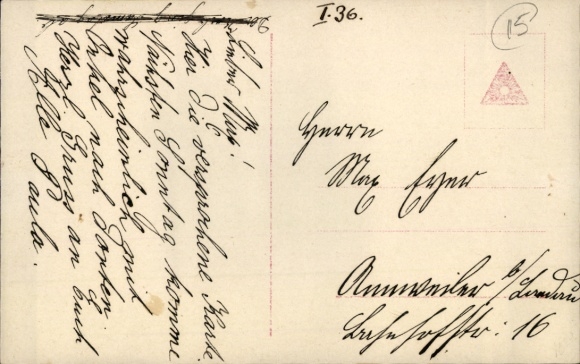 I. 36.
15
Lieber Max!
Hier die versprochene Karte.
Nächsten Sonntag komme
wahrscheinlich mit
Onkel nach dorten.
Herzl. Gruss an euch
Alle Paula.
Herrn
Max Eyer
Annweiler b/Landau
Bahnhofstr: 16